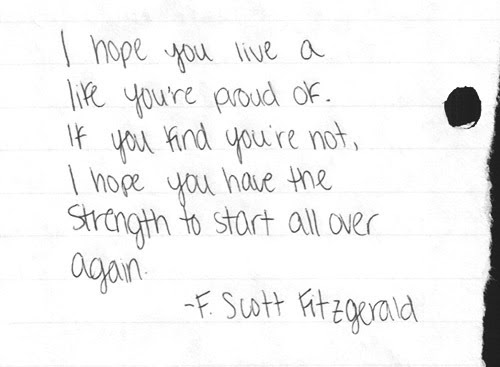 I hope you live a
life you're proud of.
If you find you're not,
I hope you have the
strength to start all over
again.
-F. Scott Fitzgerald